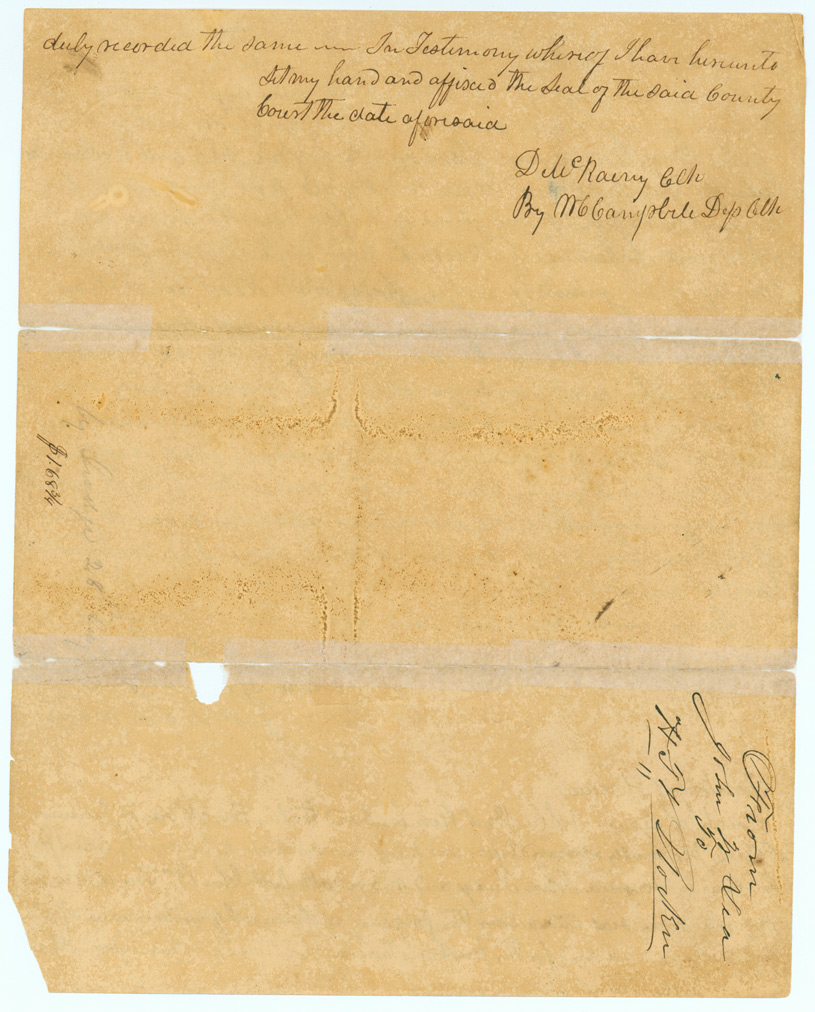 duly recorded the same — In Testimony whereof I have hereunto
set my hand and affixed the Seal of the said County
Court the date aforesaid
D McRaeny Clk
By W Campbele Dep Clk
$1.68¾
28
From
John
To
H T Y